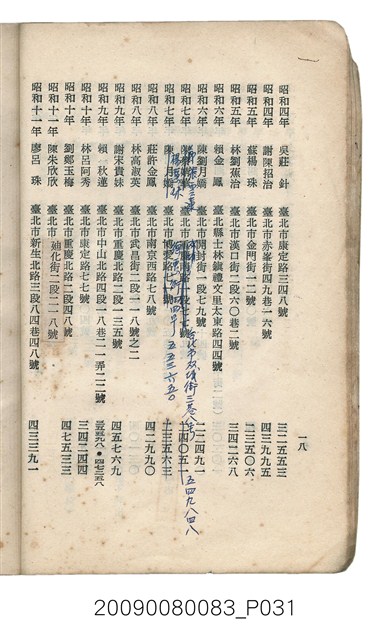 一八
昭和四年 吳莊針 臺北市康定路三四八號 三二五五三
昭和四年 謝陳招治 臺北市赤峯街四九巷一六號 四三九九五
昭和五年 蘇楊珠 臺北市金門街一二號 二三五〇六
昭和五年 林劉蕉治 臺北市漢口街二段六〇巷二號 三四二六八
昭和六年 賴金鳳 臺北縣士林鎮禮文里太東路四四號
昭和六年 陳劉月嬌 臺北市開封街一段七九號 二二四九一
昭和七年 五四九八四八
昭和七年 陳月嬌 臺北市博愛路七十號 二三五六三
五五三六五〇
昭和八年 莊許金鳳 臺北市南京西路七八號 四二九九〇
昭和八年 林高淑英 臺北市武昌街二段一一八號之二
昭和九年 謝宋貴妹 臺北市重慶北路二段一三五號 四五七六九
昭和九年 賴秋蓮 臺北市中山北路四段一八巷二一弄二二號
昭和十年 林呂阿秀 臺北市康定路七七號 三四二四四
昭和十年 劉鄭玉梅 臺北市重慶北路二段四八號 四七五三三
昭和十一年 陳朱欣欣 臺北市迪化街二段二一八號
昭和十一年 廖呂珠 臺北市新生北路三段八四巷四八號 四三三九一
20090080083_P031